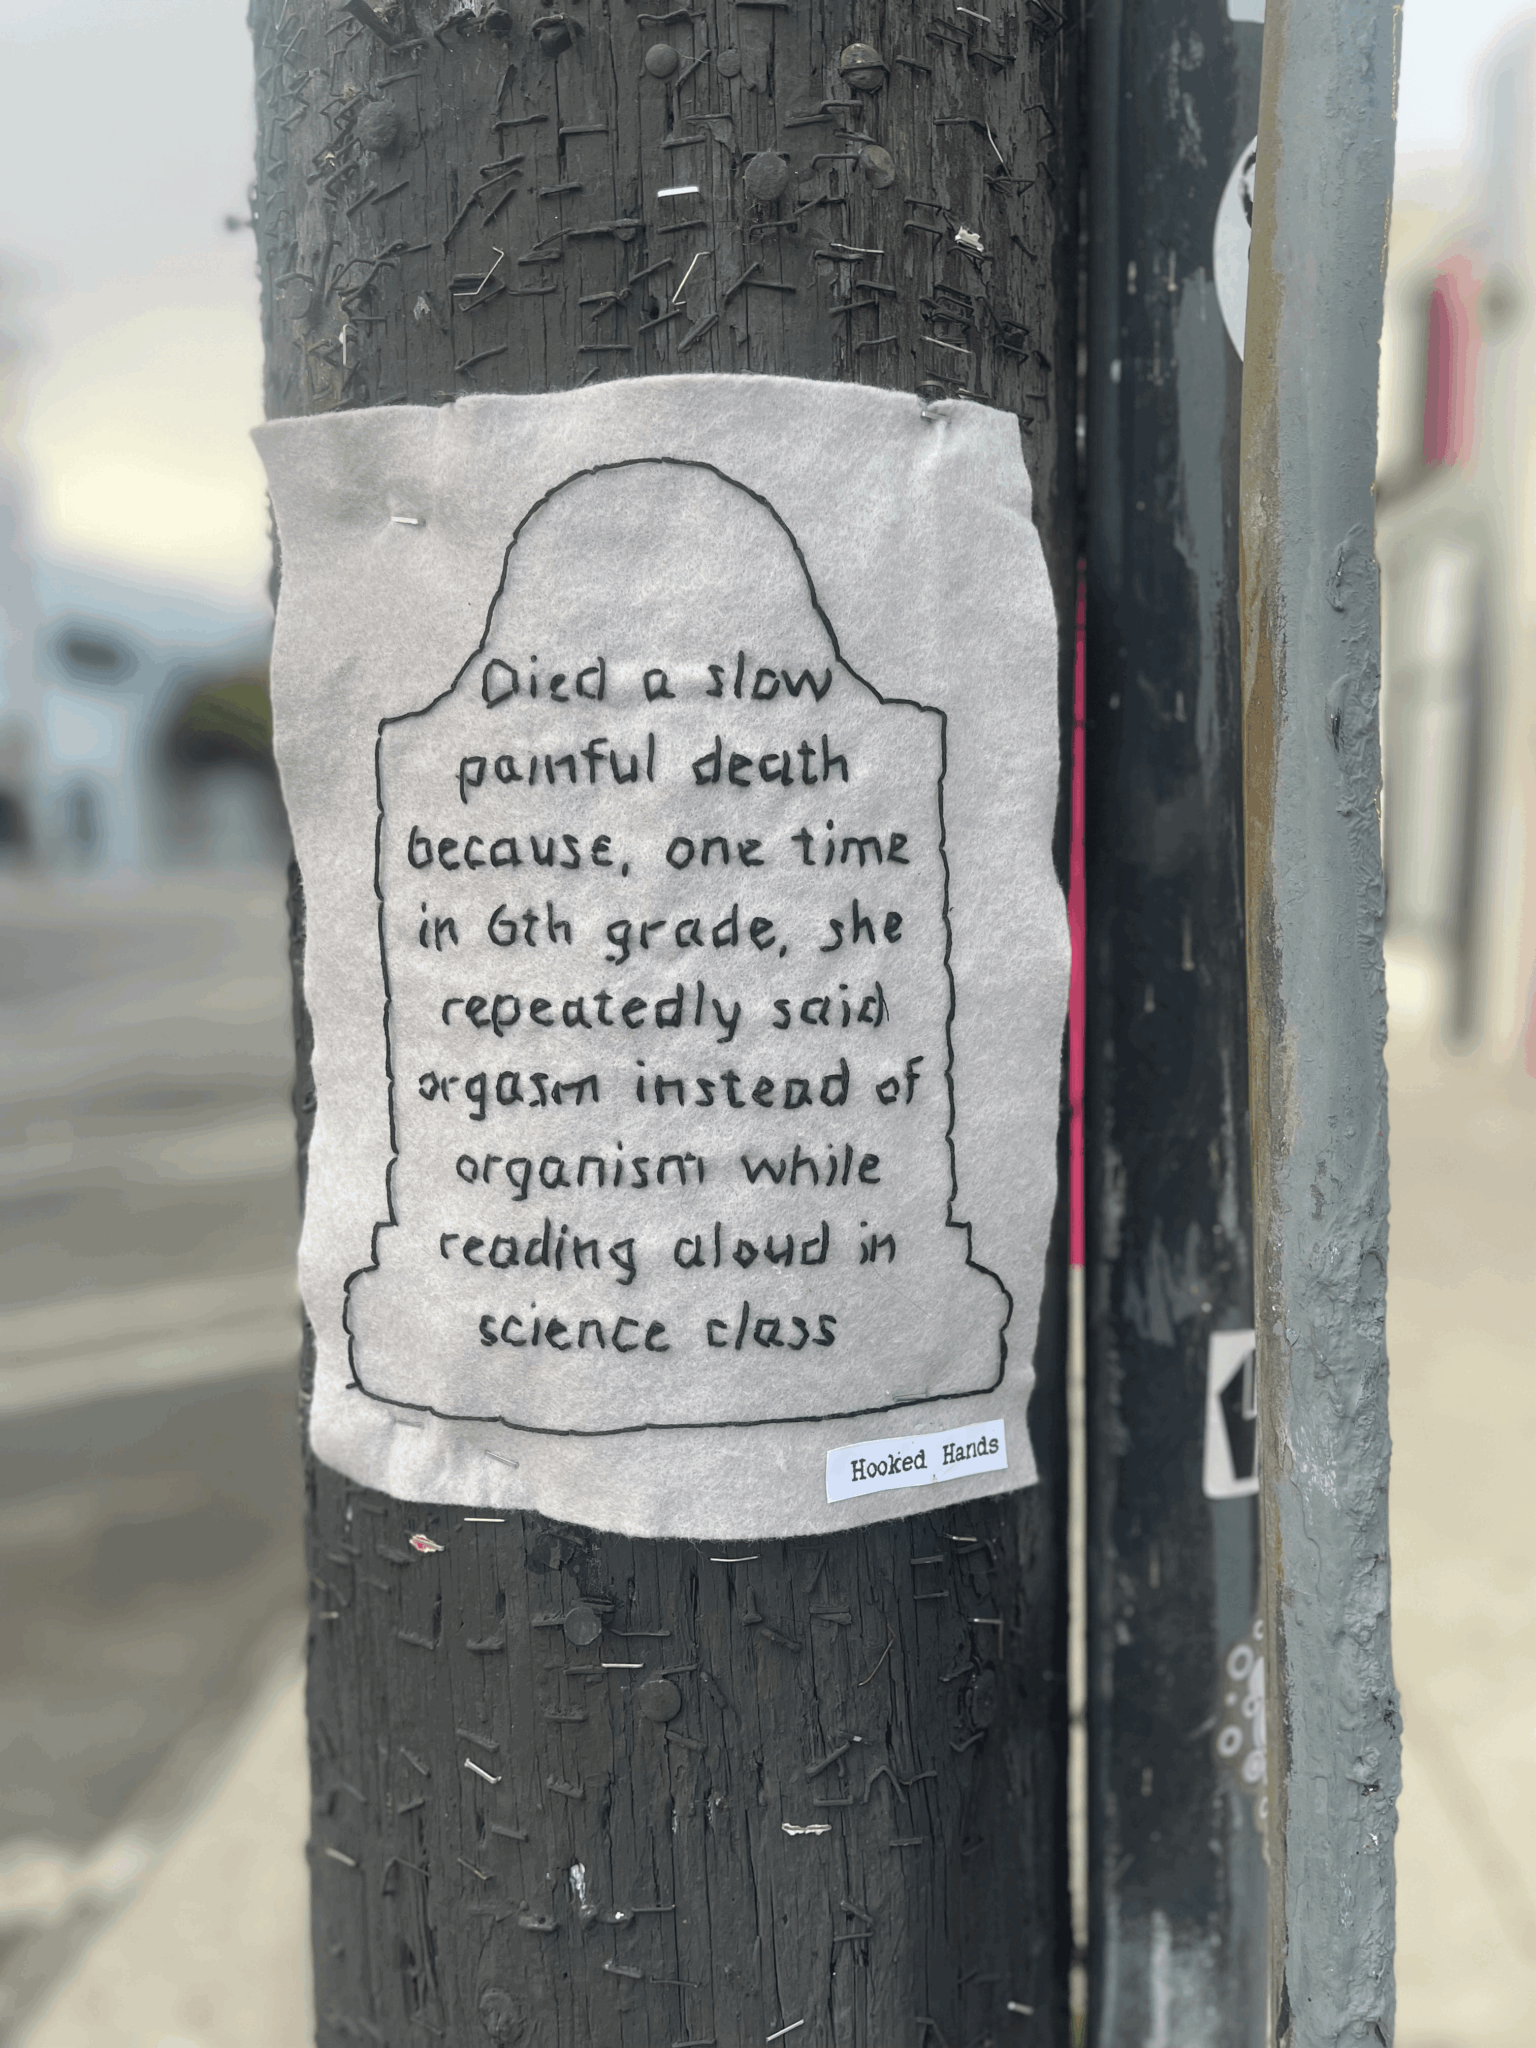 Died a slow
painful death
because, one time
in 6th grade, she
repeatedly said
orgasm instead of
organism while
reading aloud in
science class
Hooked Hands